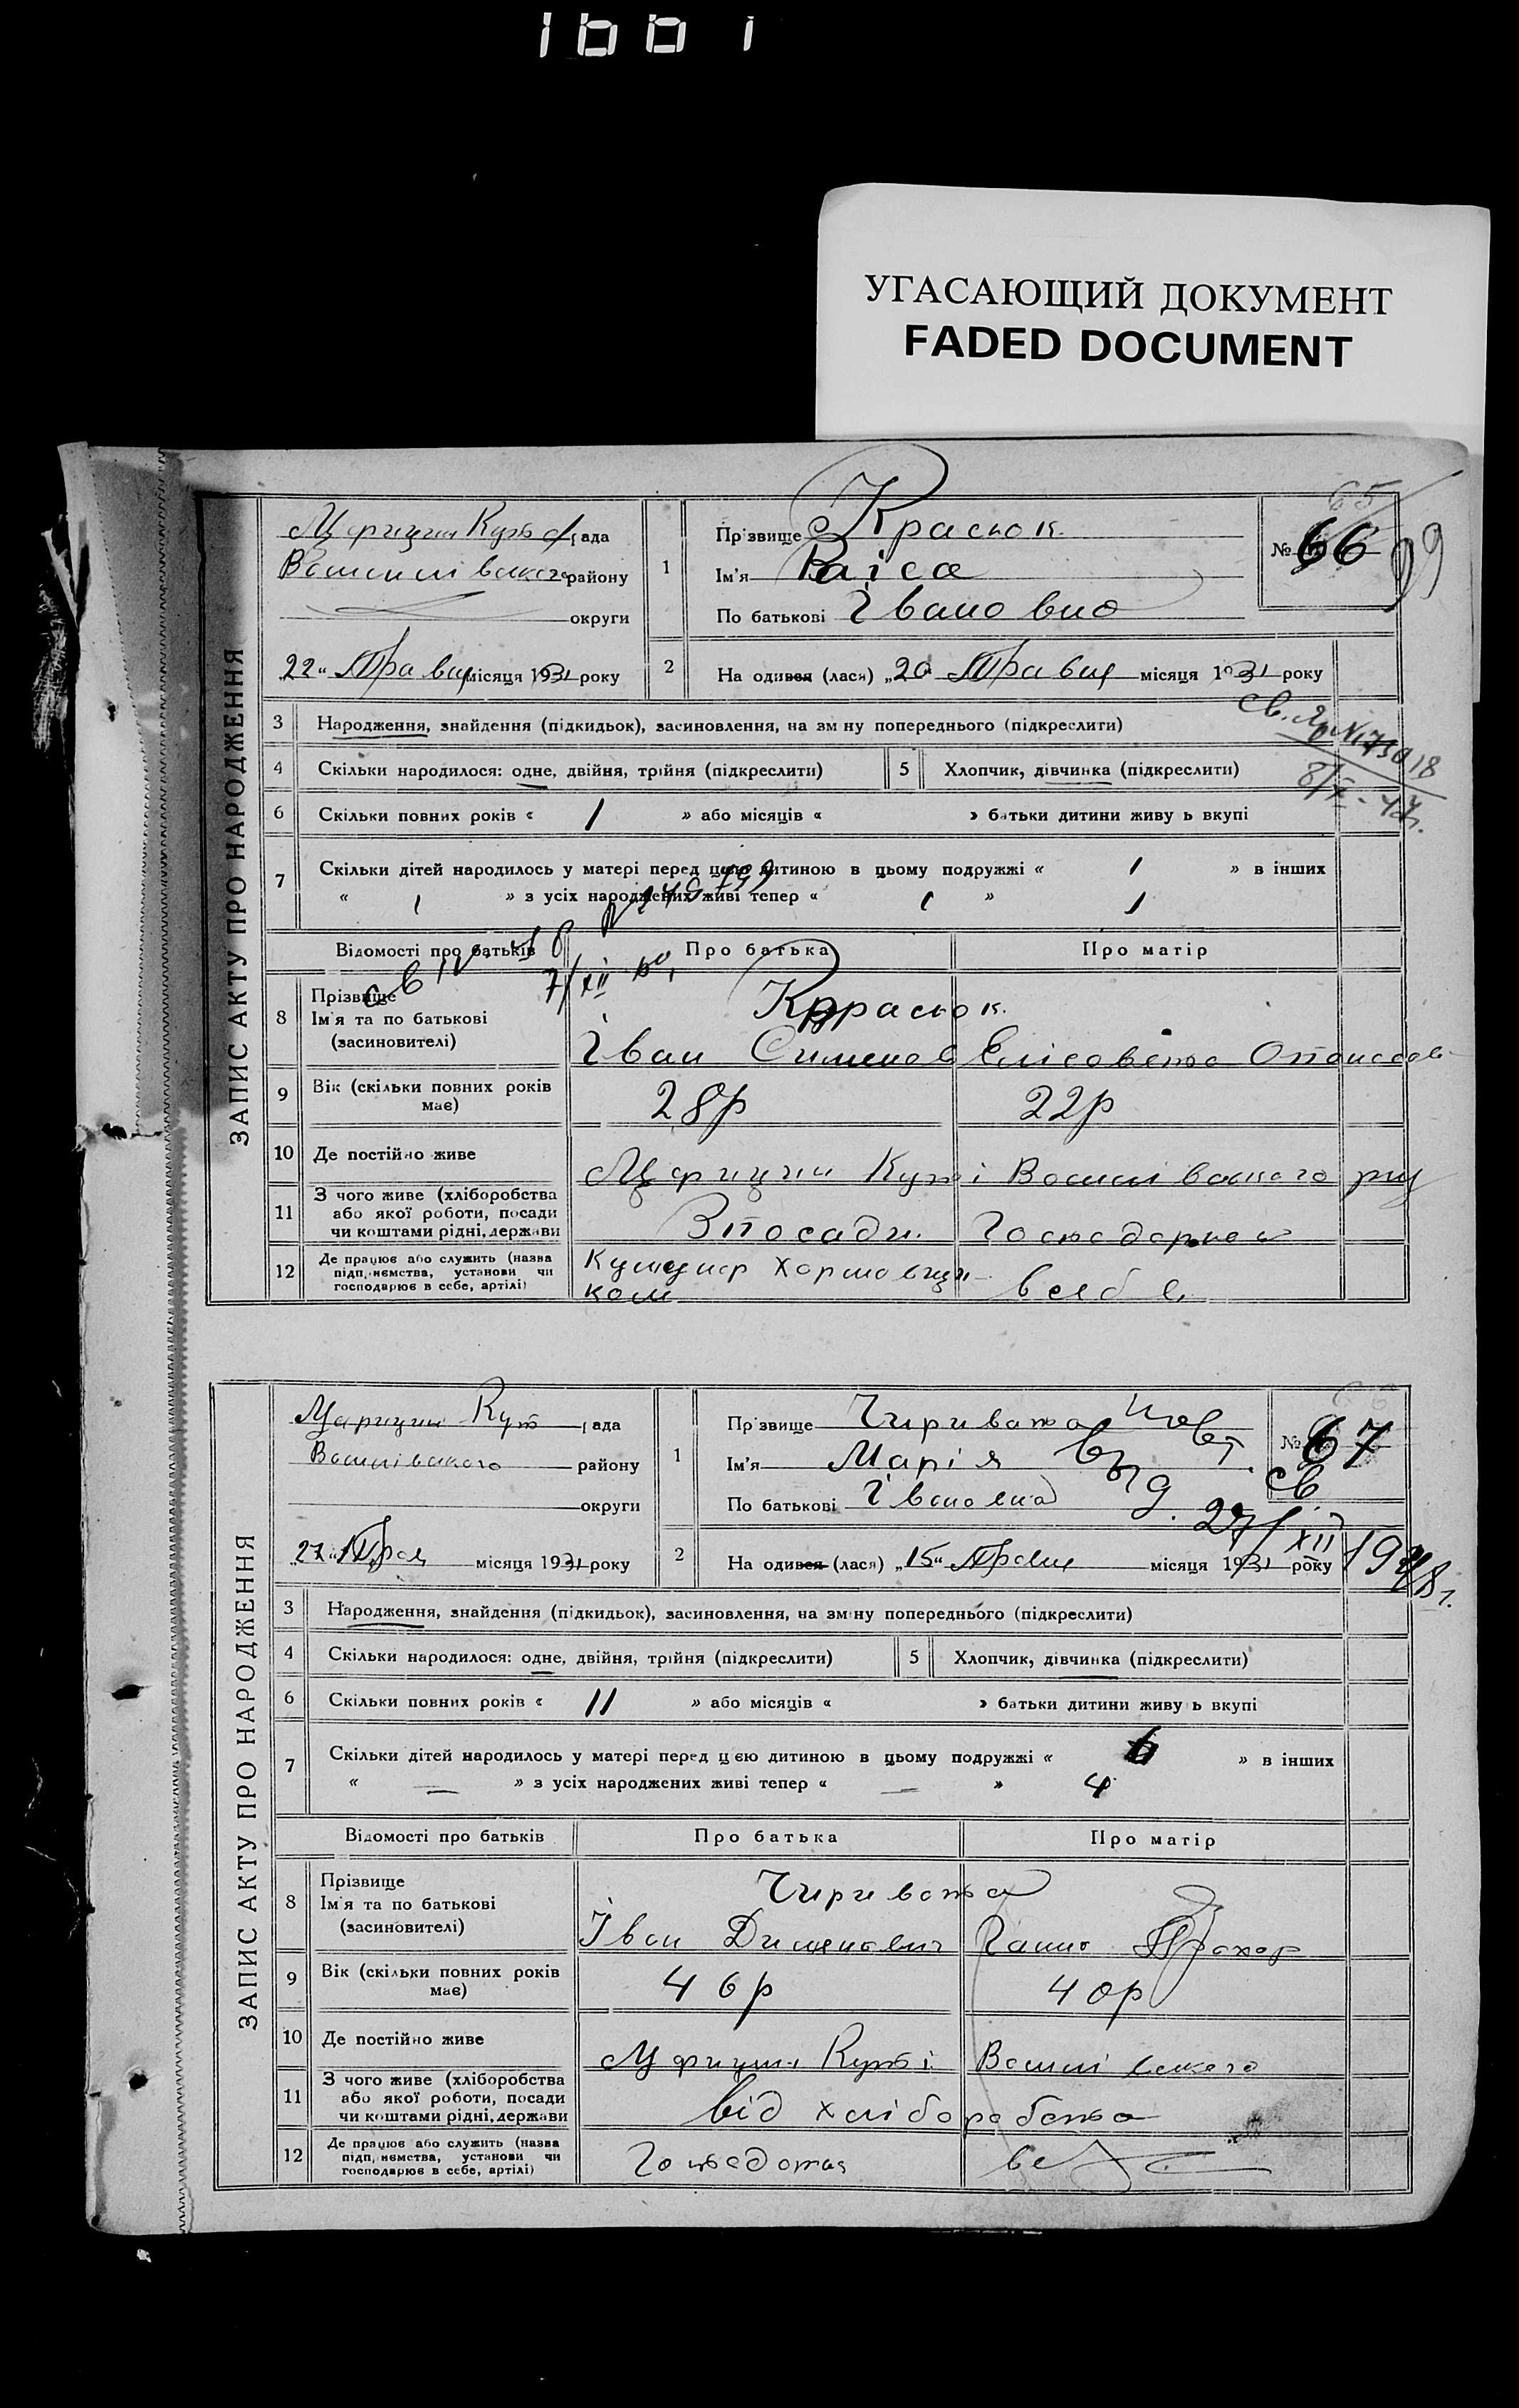 1661
УГАСАЮЩИЙ ДОКУМЕНТ
FADED DOCUMENT
ЗАПИС АКТУ ПРО НАРОДЖЕННЯ
65
Царицин Кут рада
Василівського району
округи
22 „ Травня місяця 1931 року
1
Прізвище Красюк
Ім'я Раіса
По батькові Івановна
№ 66
99
2 На одився (лася) „ 20 „ Травня місяця 1931 року
3 Народження, знайдення (підкидьок), засиновлення, на зміну попереднього (підкреслити)
4 Скільки народилося: одне, двійня, трійня (підкреслити) 5 Хлопчик, дівчинка (підкреслити)
6 Скільки повних років « 1 » або місяців « » батьки дитини живуть вкупі
7 Скільки дітей народилось у матері перед цією дитиною в цьому подружжі « 1 » в інших
« 1 » з усіх народжених живі тепер « 1 » 1
Відомості про батьків Про батька Про матір
8 Прізвище
Ім'я та по батькові
(засиновителі)
Красюк
Іван
9 Вік (скільки повних років має) 28р 22р
10 Де постійно живе Царицин Куті Василівського рну
11 З чого живе (хліборобства або якої роботи, посади чи коштами рідні, держави З посади
12 Де працює або служить (назва підприємства, установи чи господарює в себе, артілі)
ЗАПИС АКТУ ПРО НАРОДЖЕННЯ
Царицин Кут рада
Василівського району
округи
„27„ Трав місяця 1931 року
1
Прізвище Чиривата
Ім'я Марія
По батькові Івановна
№ 67
св.
27/XII 1948 г.
2 На одився (лася) „15„ Травня місяця 1931 року
3 Народження, знайдення (підкидьок), засиновлення, на зміну попереднього (підкреслити)
4 Скільки народилося: одне, двійня, трійня (підкреслити) 5 Хлопчик, дівчинка (підкреслити)
6 Скільки повних років « 11 » або місяців « » батьки дитини живуть вкупі
7 Скільки дітей народилось у матері перед цією дитиною в цьому подружжі « 6 » в інших
« — » з усіх народжених живі тепер « — » 4
Відомості про батьків Про батька Про матір
8 Прізвище
Ім'я та по батькові
(засиновителі)
Чиривата
Іван Ганна
9 Вік (скільки повних років має) 46р 40р
10 Де постійно живе Царицин Куті Василівського
11 З чого живе (хліборобства або якої роботи, посади чи коштами рідні, держави від хліборобства
12 Де працює або служить (назва підприємства, установи чи господарює в себе, артілі)